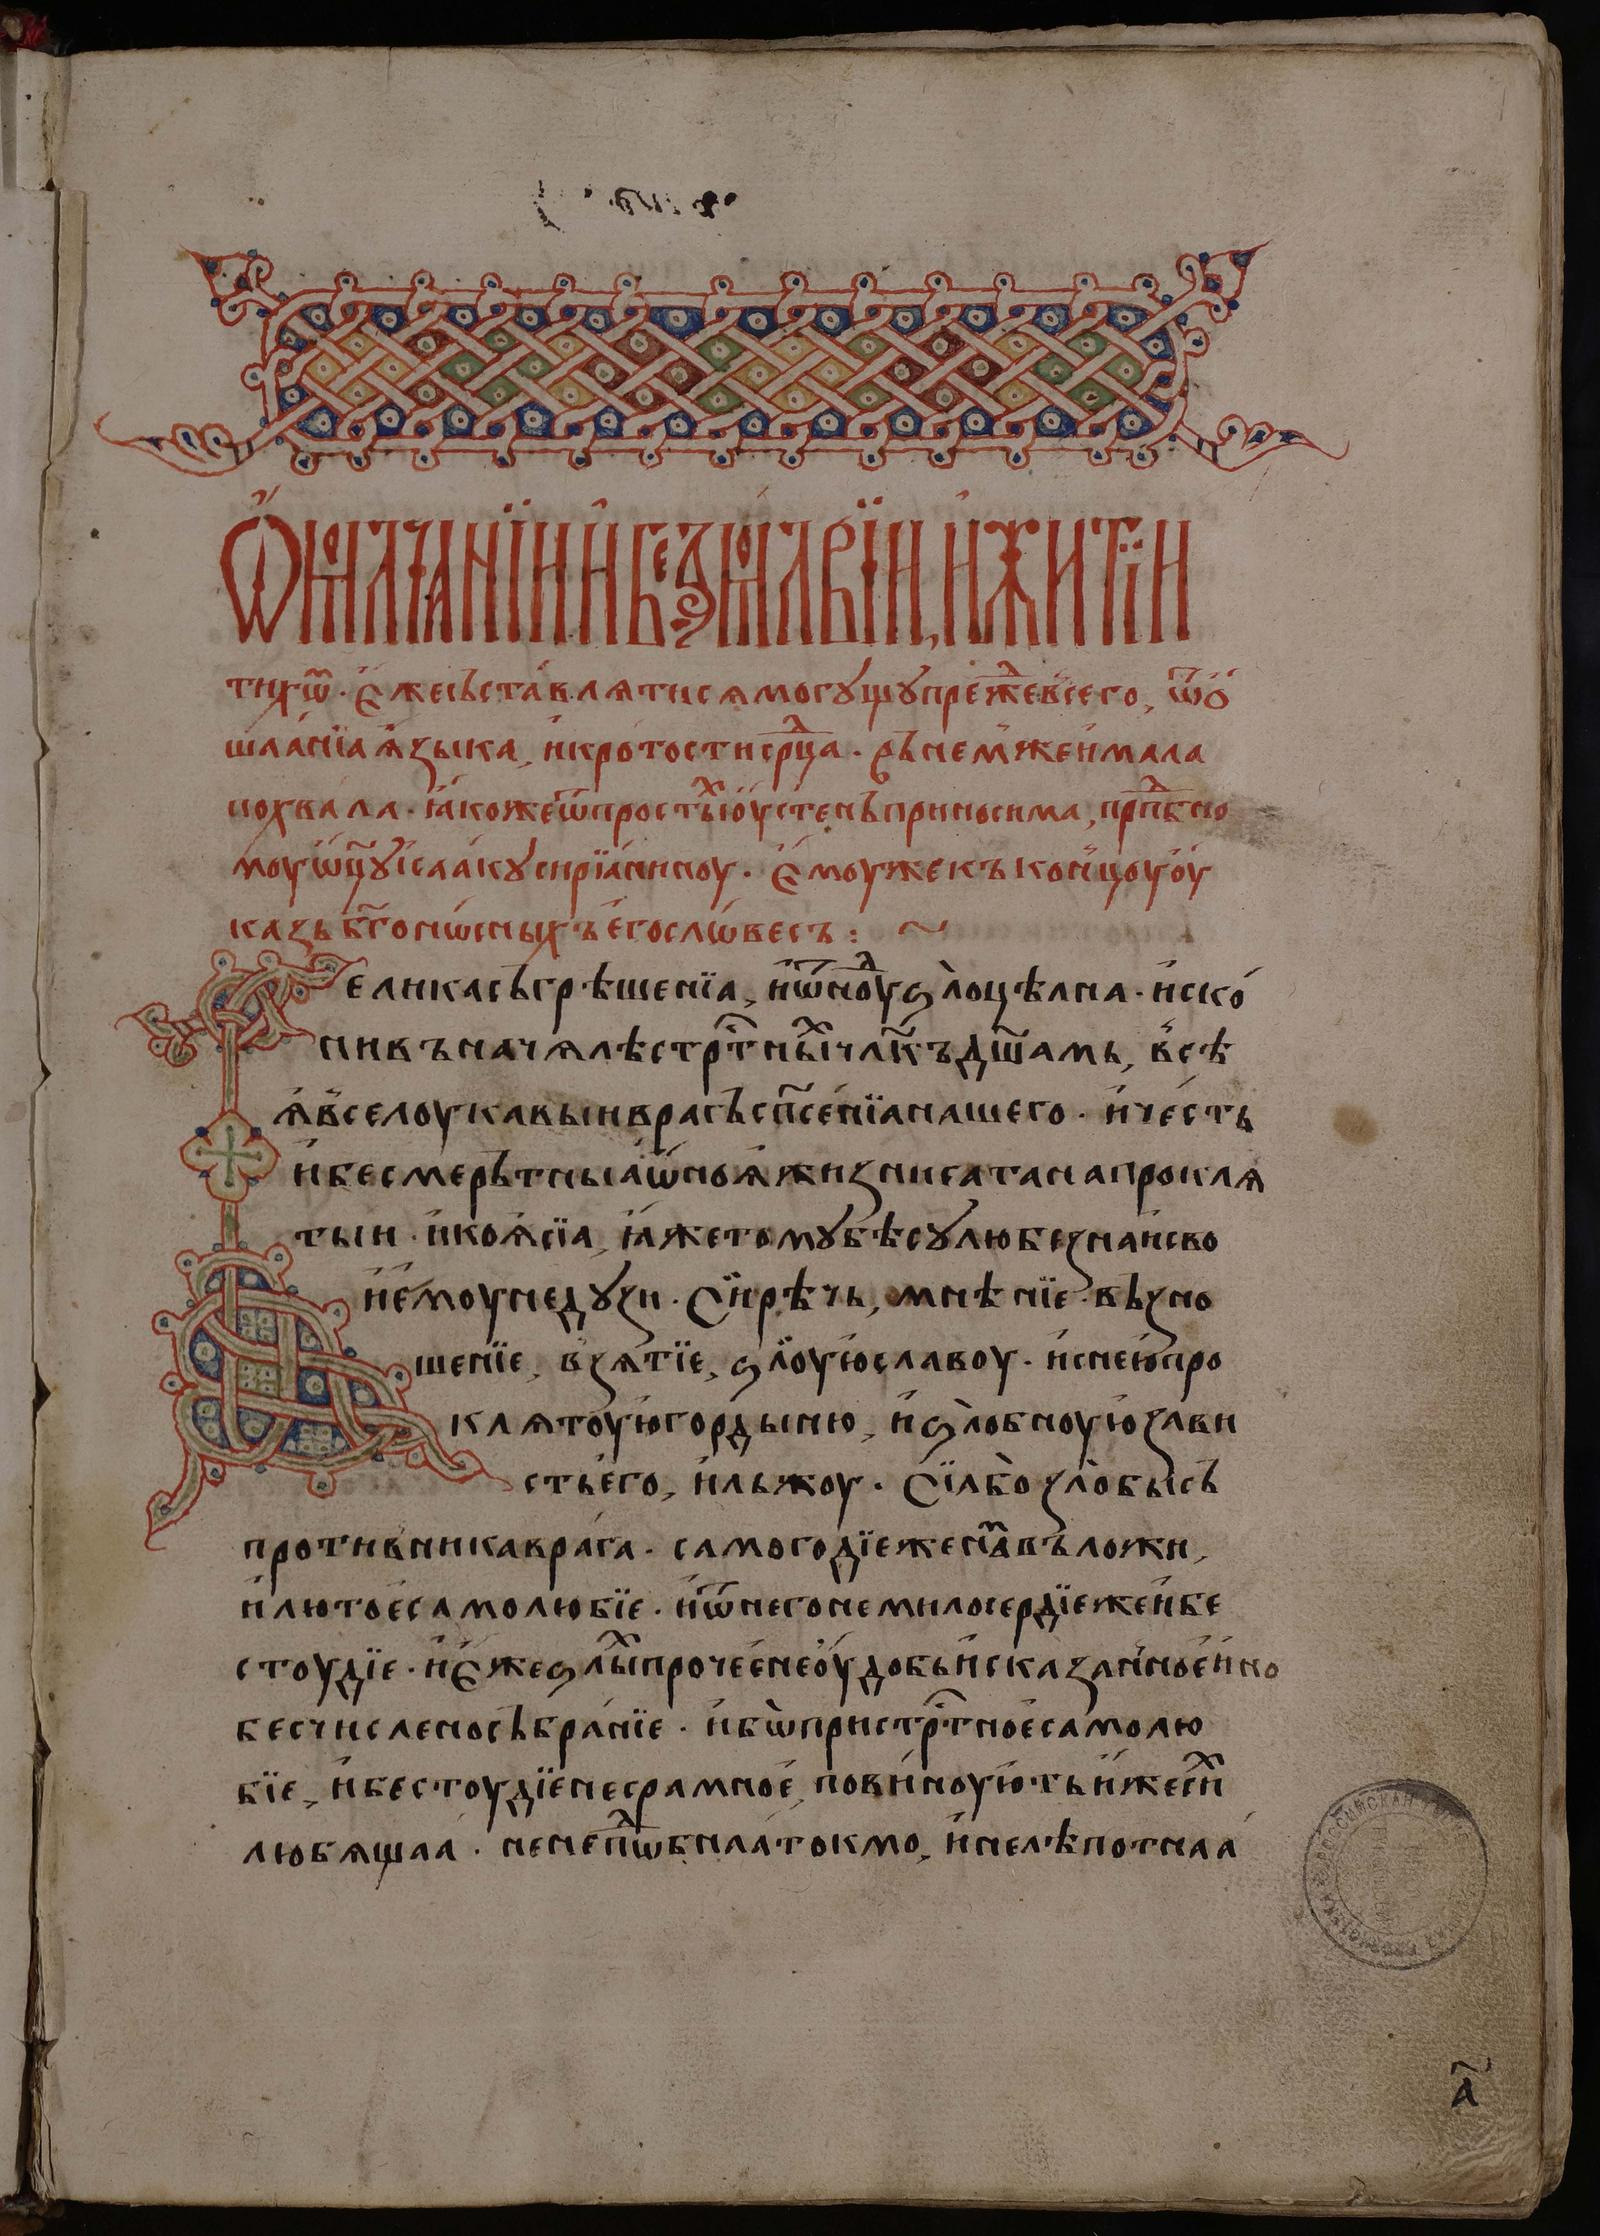 Ѡ҆ мⷪ҇лчанїи и҆ беꙁмⷪ҇лвїи, и҆ житїи
тихѡⷨ҇. є҆же съставлятисѧ могꙋщꙋ прежⷣе всего, ѿ ѻу҆
шланїа ꙗ҆зыка, и҆ кротости срⷣца. въ немже и҆ мала
похвала. ꙗ҆коже ѿ простыⷯ ю҆ устенъ приносима, прⷣпбно
моу ѻ҆ц҃ꙋ і҆саакꙋ сирїаниноу. є҆моуже къ концоу оу҆
каꙁъ бг҃онѡсныхъ е҆го слѡвесъ :~
елика съгрѣшенїа, и҆ ѿноуⷣ ѕло цѣлна. и҆ско
ни въ начѧлѣ стрⷭ҇тныⷯ чл҃къ дш҃амь, всѣ
ѧ҆ вселоукавыи врагъ сп҃сенїа нашего. и҆ честь
и҆ бесмерътныа ѻ҆ноѧ жиꙁни сатана проклѧ
тыи. и҆ коѧ сїа, ꙗ҆же томꙋ бѣсꙋ любеꙁна и҆ сво
и҆ емоу недꙋꙁи. сирѣчь, мнѣнїе. въꙁно
шенїе, вꙁѧтїе, ѕлоую славоу. и҆ с нею про
клѧтоую гордыню, и҆ ѕлобноую ꙁави
сть е҆го, и҆ лъжоу. сїа бо ꙁлобы съ
противника врага. самого дїеже с на въложи,
и҆ лютое самолюбїе. и҆ ѿ него немилосердїе же и҆ бе
стоудїе. и҆ є҆же ѕлыⷯ прочее неоу҆добь и҆сказанное и҆ но
бесчислено събранїе. и҆бѡ пристрⷭ҇тное самолю
бїе, и҆ бестоудїе несрамное, повиноують и҆же сиⷯ
любѧщаа. не непⷣѡбнла токмо, и҆ нелѣпотнаа
а҃